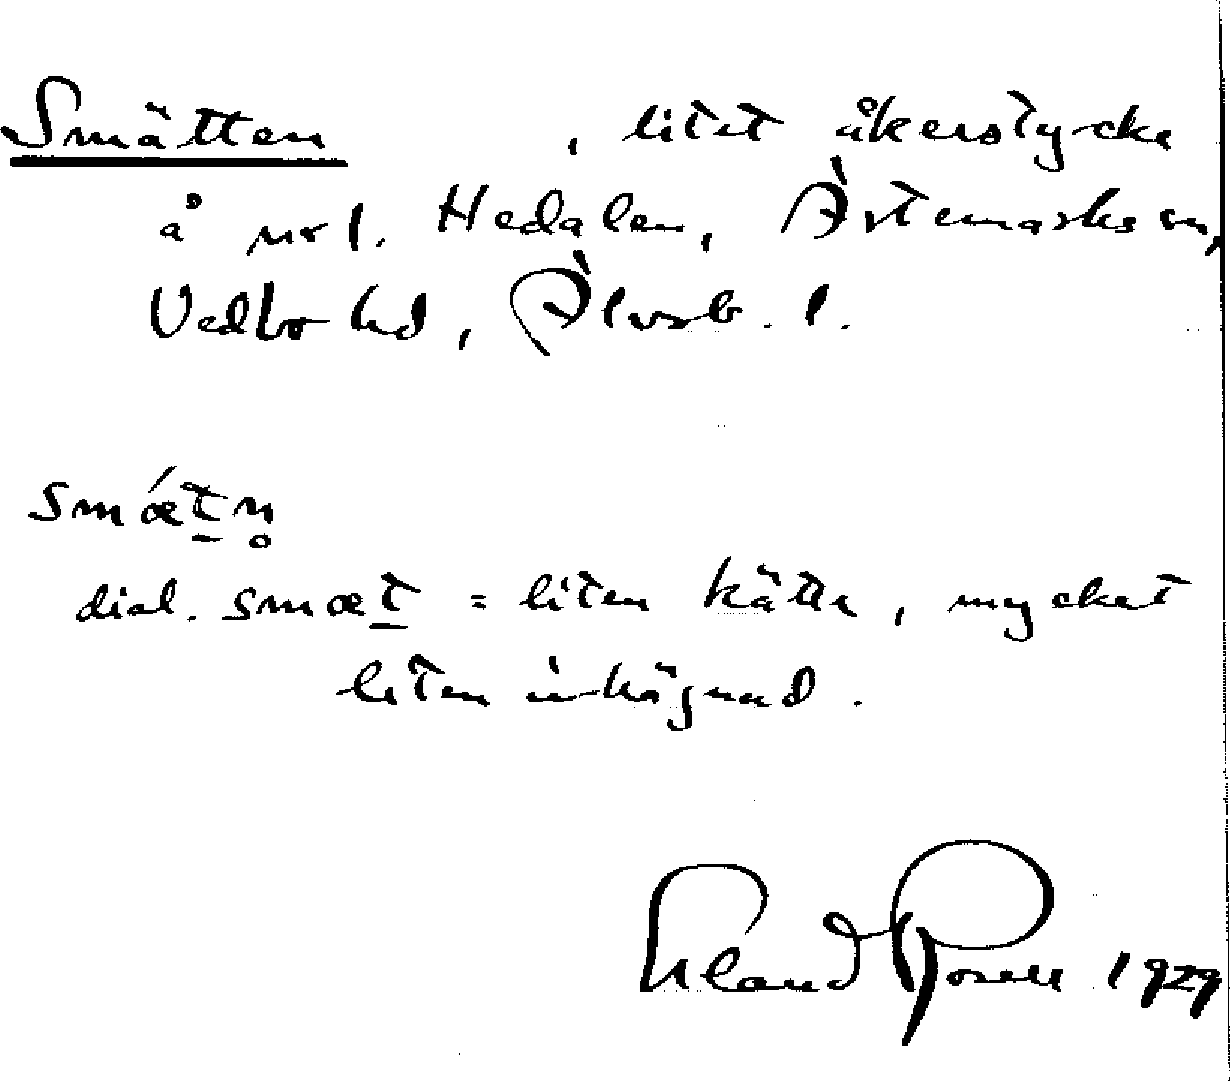 Smätten , litet åkerstycke
å nr 1. Hedalen, Ärtemarks sn,
Vedbo hd, Älvsb. l.
smǽt̲n̥
dial. smæt̲ = liten kätte, mycket
liten inhägnad.
Erland Rosell 1929